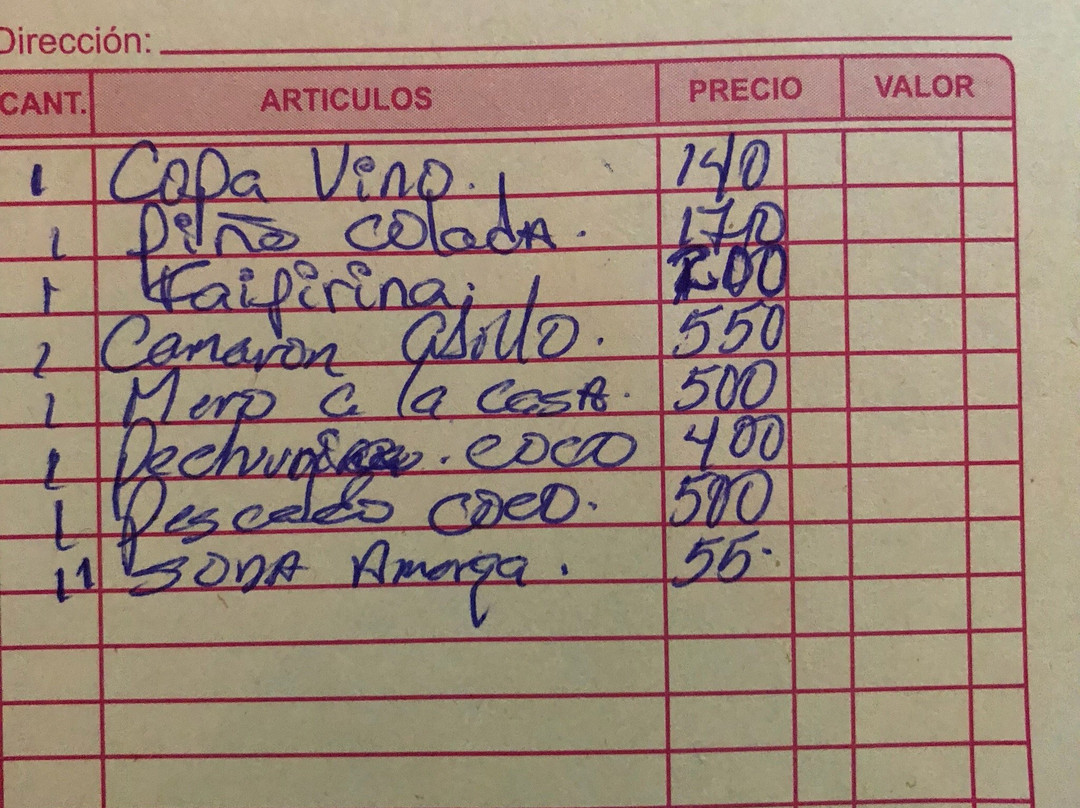 Dirección:
CANT. ARTICULOS PRECIO VALOR
1 Copa Vino. 140
1 Piña colada. 170
1 Kaipirina. 200
1 Camaron ajillo. 550
1 Mero a la casa. 500
1 Pechuriña. coco 400
1 Pescado coco. 500
11 SODA Amarga. 55